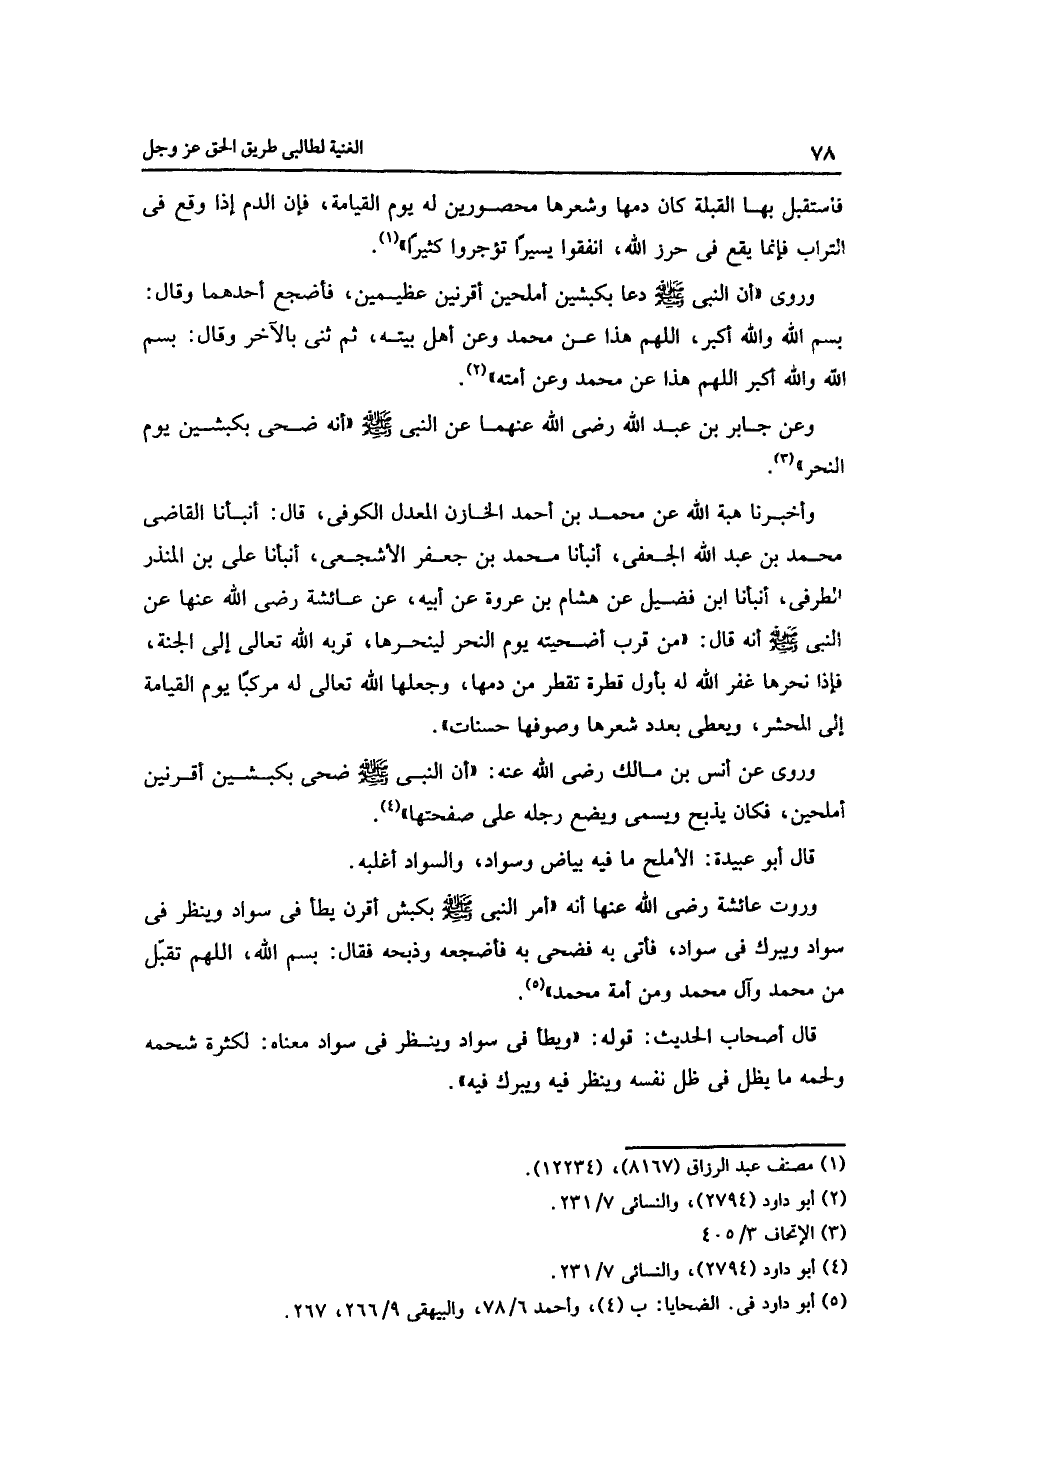 ٧٨ الغنية لطالبى طريق الحق عز وجل
فاستقبل بها القبلة كان دمها وشعرها محصورين له يوم القيامة، فإن الدم إذا وقع فى
التراب فإنما يقع فى حرز الله، انفقوا يسيرًا تؤجروا كثيرًا»(١).
وروى «أن النبى ﷺ دعا بكبشين أملحين أقرنين عظيمين، فأضجع أحدهما وقال:
بسم الله والله أكبر، اللهم هذا عن محمد وعن أهل بيته، ثم ثنى بالآخر وقال: بسم
الله والله أكبر اللهم هذا عن محمد وعن أمته»(٢).
وعن جابر بن عبد الله رضى الله عنهما عن النبى ﷺ «أنه ضحى بكبشين يوم
النحر»(٣).
وأخبرنا هبة الله عن محمد بن أحمد الخازن المعدل الكوفى، قال: أنبأنا القاضى
محمد بن عبد الله الجعفى، أنبأنا محمد بن جعفر الأشجعى، أنبأنا على بن المنذر
الطرفى، أنبأنا ابن فضيل عن هشام بن عروة عن أبيه، عن عائشة رضى الله عنها عن
النبى ﷺ أنه قال: «من قرب أضحيته يوم النحر لينحرها، قربه الله تعالى إلى الجنة،
فإذا نحرها غفر الله له بأول قطرة تقطر من دمها، وجعلها الله تعالى له مركبًا يوم القيامة
إلى المحشر، ويعطى بعدد شعرها وصوفها حسنات».
وروى عن أنس بن مالك رضى الله عنه: «أن النبى ﷺ ضحى بكبشين أقرنين
أملحين، فكان يذبح ويسمى ويضع رجله على صفحتها»(٤).
قال أبو عبيدة: الأملح ما فيه بياض وسواد، والسواد أغلبه.
وروت عائشة رضى الله عنها أنه «أمر النبى ﷺ بكبش أقرن يطأ فى سواد وينظر فى
سواد ويبرك فى سواد، فأتى به فضحى به فأضجعه وذبحه فقال: بسم الله، اللهم تقبّل
من محمد وآل محمد ومن أمة محمد»(٥).
قال أصحاب الحديث: قوله: «ويطأ فى سواد وينظر فى سواد معناه: لكثرة شحمه
ولحمه ما يظل فى ظل نفسه وينظر فيه ويبرك فيه».
(١) مصنف عبد الرزاق (٨١٦٧)، (١٢٢٣٤).
(٢) أبو داود (٢٧٩٤)، والنسائى ٧/ ٢٣١.
(٣) الإتحاف ٣/ ٤٠٥
(٤) أبو داود (٢٧٩٤)، والنسائى ٧/ ٢٣١.
(٥) أبو داود فى. الضحايا: ب (٤)، وأحمد ٦/ ٧٨، والبيهقى ٩/ ٢٦٦، ٢٦٧.